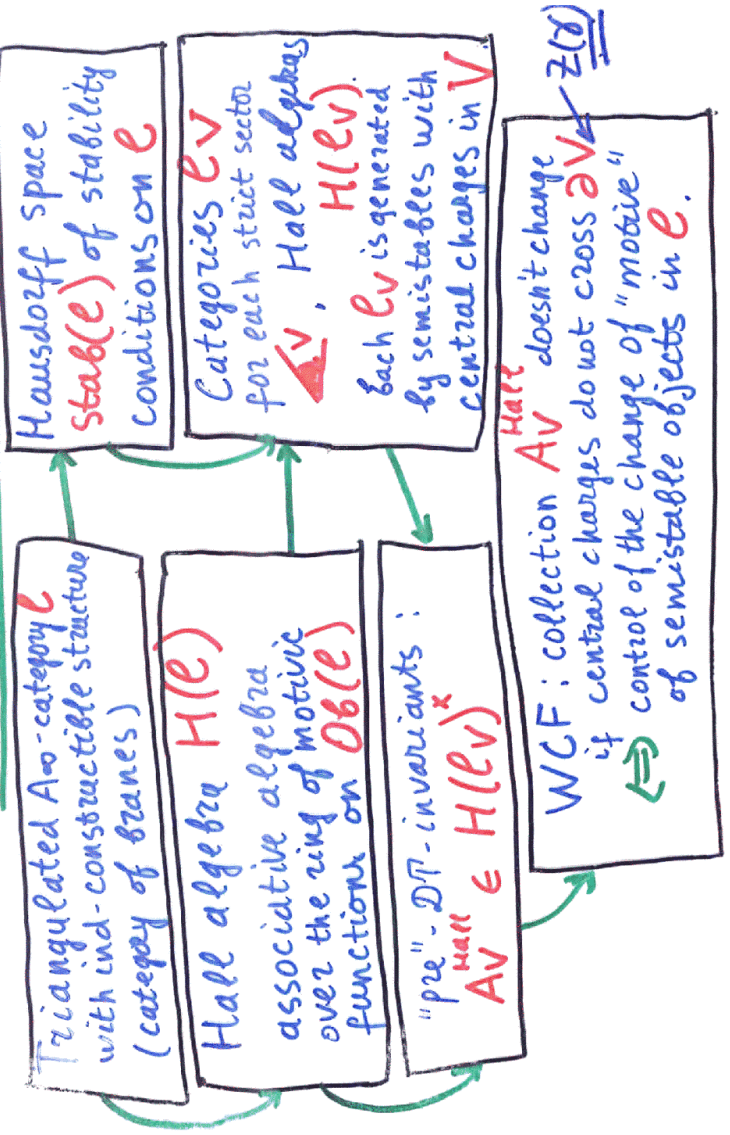 Triangulated A∞-category C
with ind-constructible structure
(category of branes)
Hausdorff space
Stab(C) of stability
conditions on C
Hall algebra H(C)
associative algebra
over the ring of motivic
functions on Ob(C)
Categories C_V
for each strict sector
V. Hall algebras
H(C_V).
Each C_V is generated
by semistables with
central charges in V
"pre"-DT-invariants:
A_V^Hall ∈ H(C_V)^×
WCF: collection A_V^Hall doesn't change
if central charges do not cross ∂V
Z(γ)
⇔ control of the change of "motive"
of semistable objects in C.